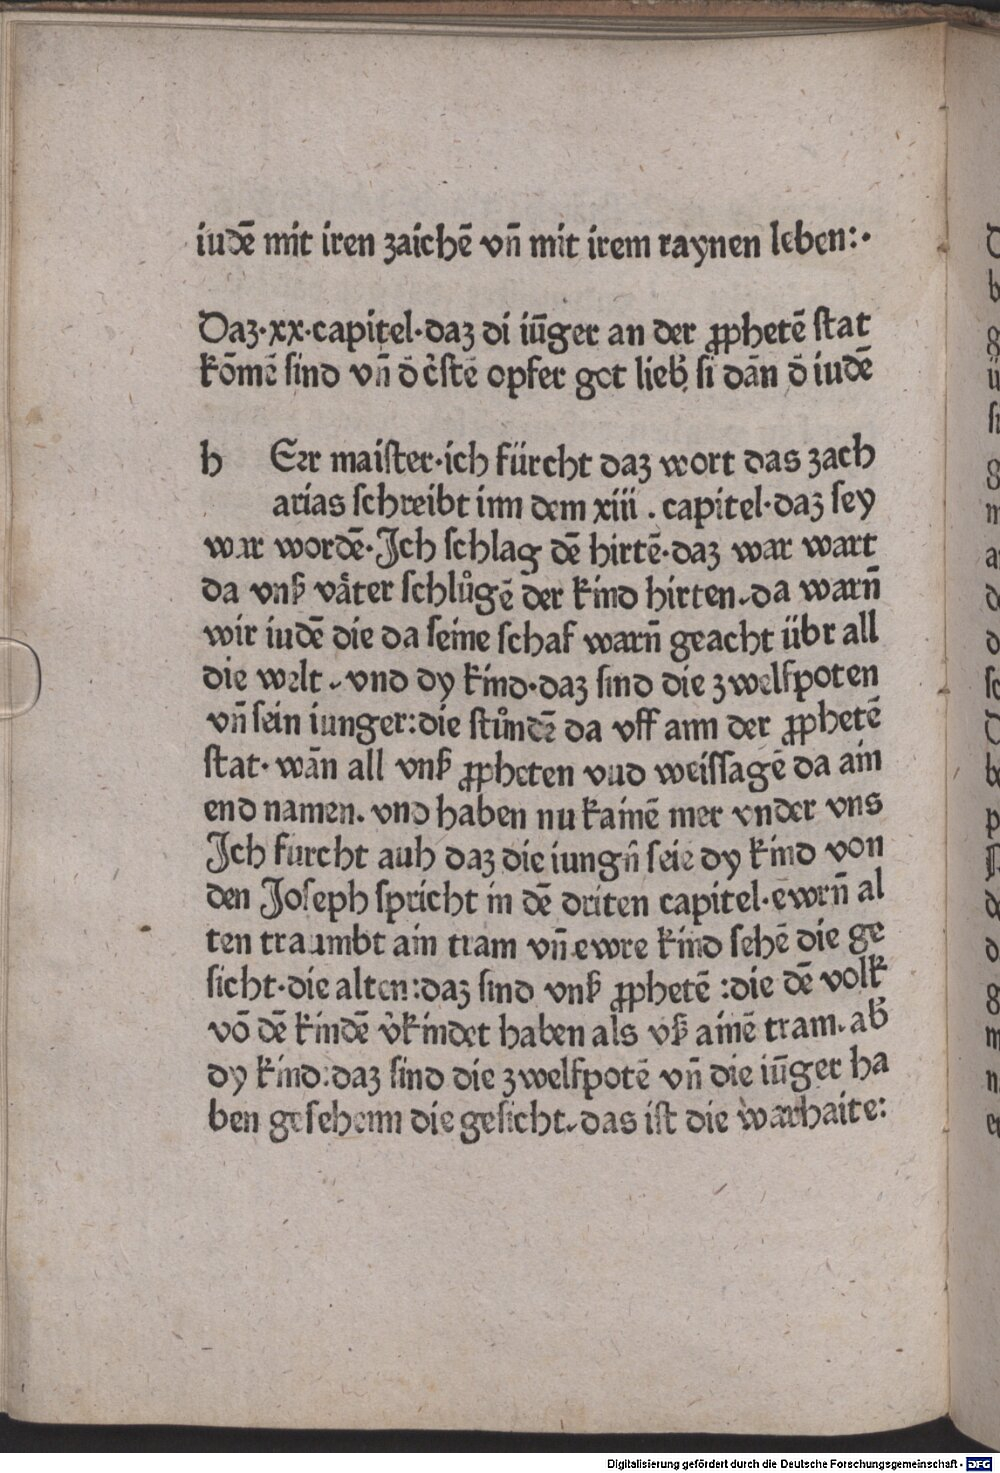 iudē mit iren zaichē vn̄ mit irem raynen leben:·
Daz·xx·capitel·daz di iūger an der ꝓphetē stat
kōmē sind vn̄ d̄ c̓stē opfer got lieb̓ si dān d̄ iudē
h Err maister·ich fürcht daz wort das zach
arias schreibt inn dem xiii . capitel·daz sey
war wordē·Ich schlag dē hirtē·daz war wart
da vnß väter schlůgē der kind hirten.da warn̄
wir iudē die da seine schaf warn̄ geacht übr all
die welt.vnd dy kind·daz sind die zwelfpoten
vn̄ sein iunger:die stůndē da vff ann der ꝓphetē
stat· wān all vnß ꝓpheten vnd weissagē da ain
end namen. vnd haben nu kainē mer vnder vns
Ich furcht auh daz die iungn̄ seie dy kind von
den Joseph spricht in dē driten capitel·ewrn̄ al
ten traumbt ain tram vn̄ ewre kind sehē die ge
sicht·die alten:daz sind vnß ꝓphetē :die dē volk
vō dē kindē v̓kindet haben als vß ainē tram.ab̓
dy kind:daz sind die zwelfpotē vn̄ die iūger ha
ben gesehenn die gesicht.das ist die warhaite:
Digitalisierung gefördert durch die Deutsche Forschungsgemeinschaft - DFG